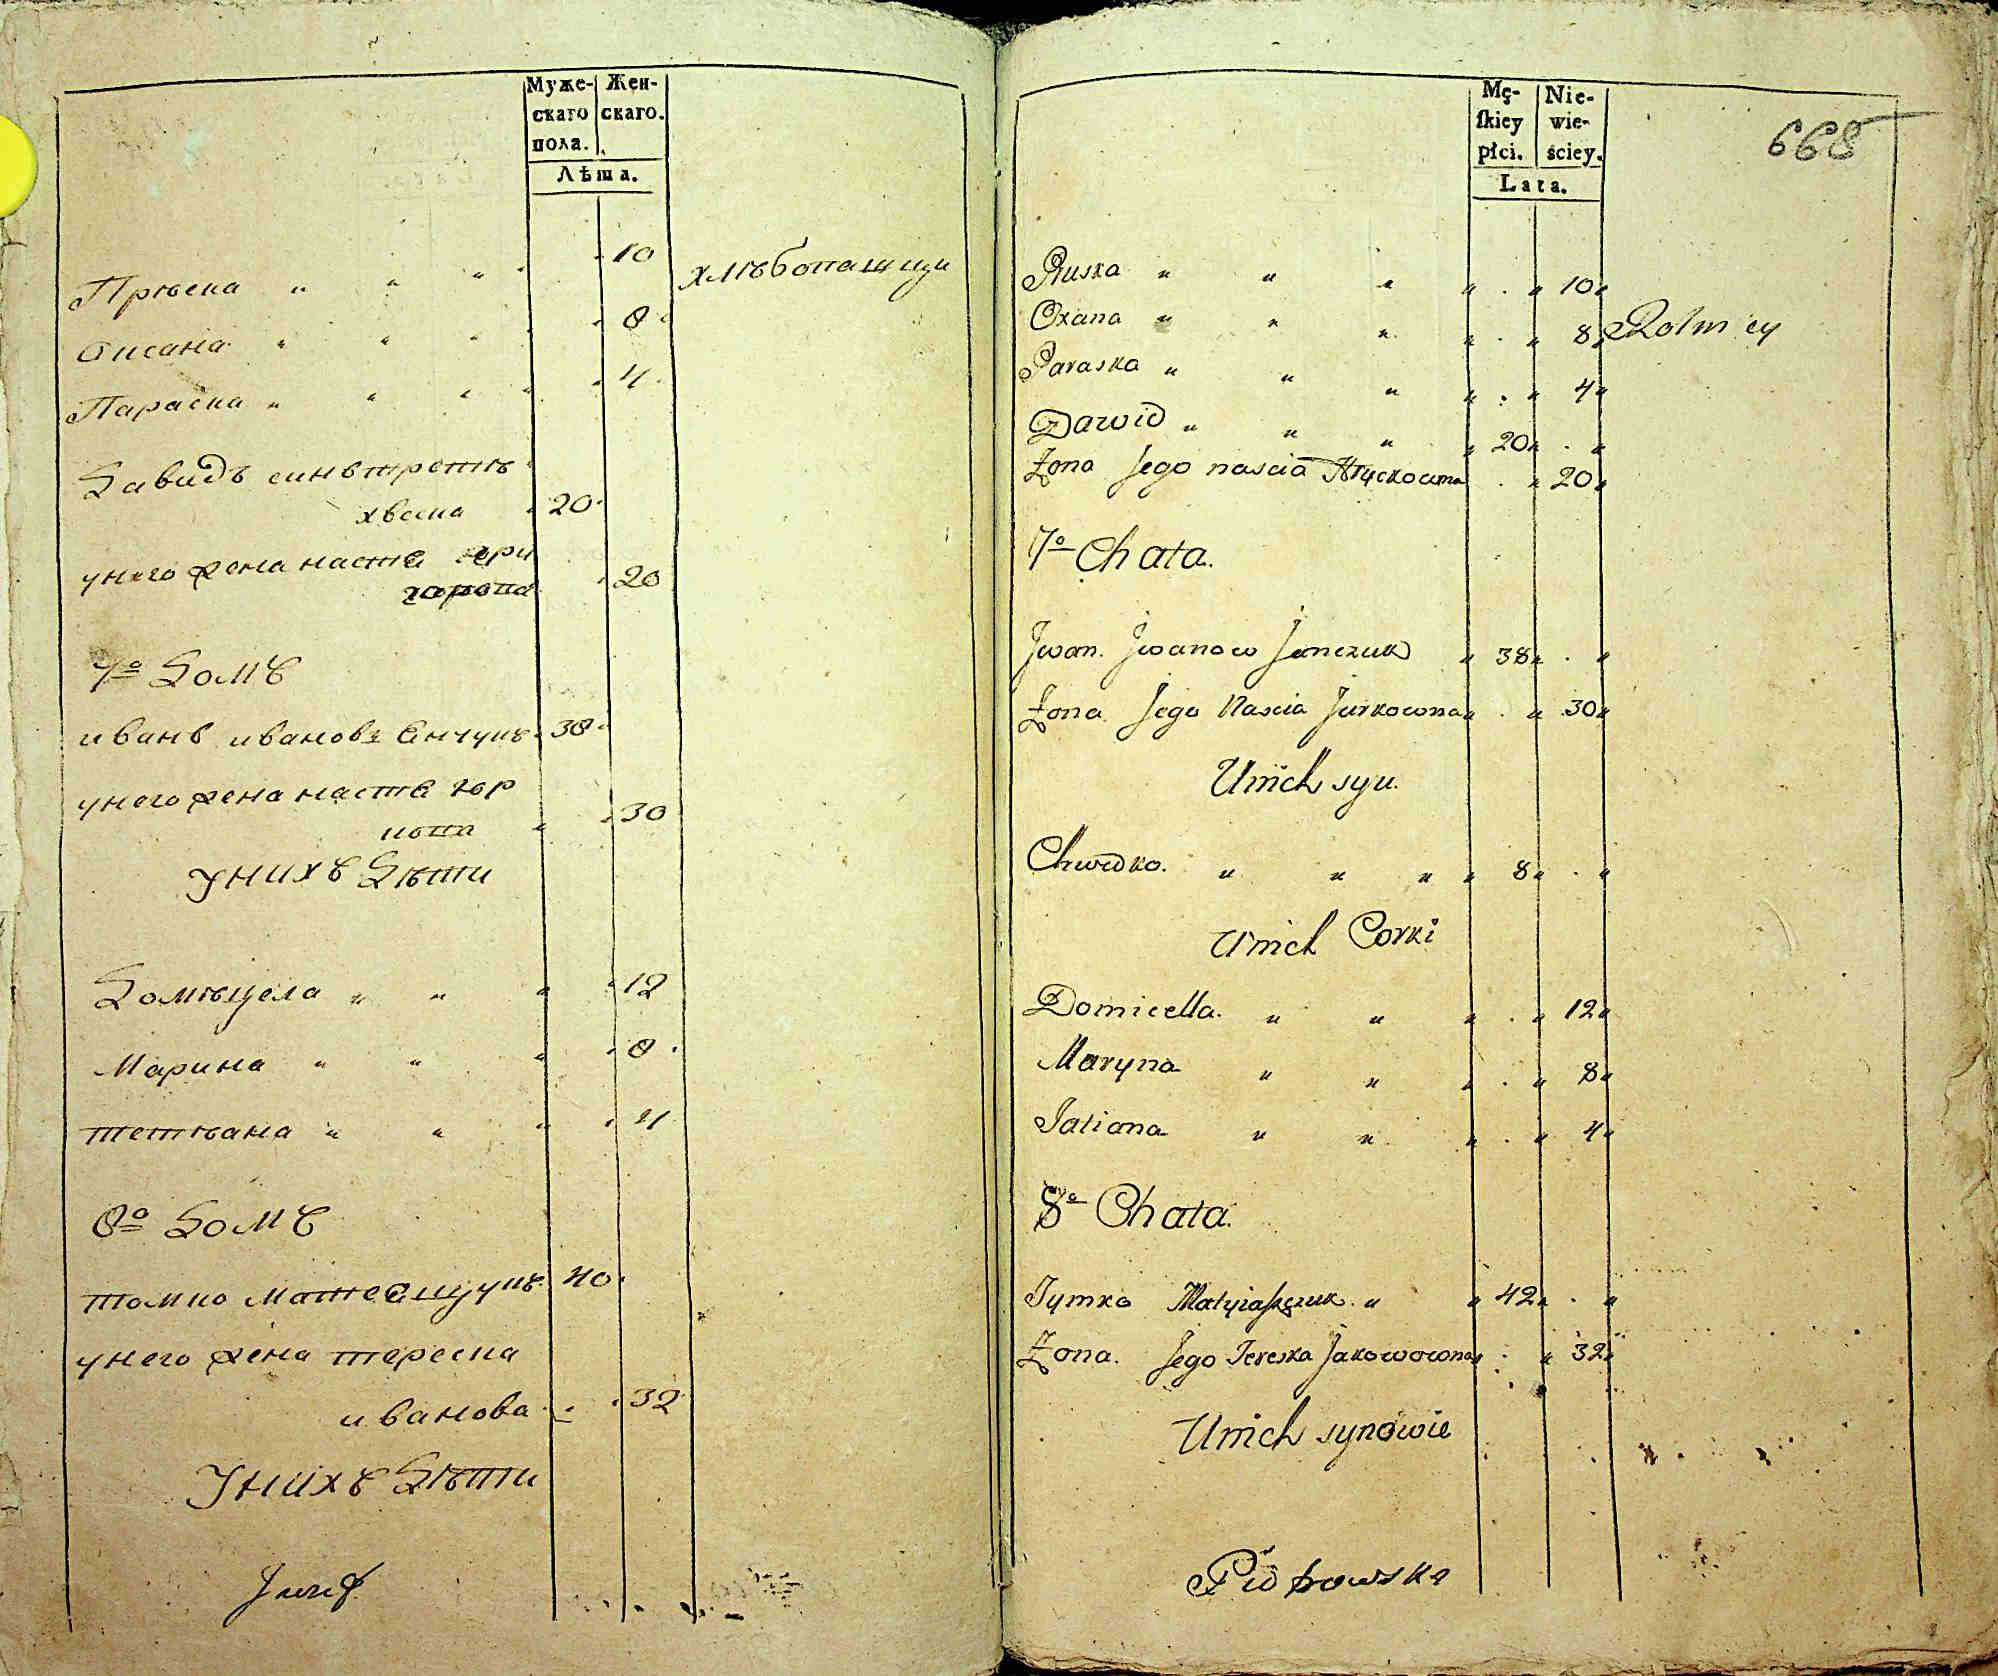 Муже-
скаго
пола.
Жен-
скаго.
Лѣта.
Прѣска " " " " 10 хлѣбопашцы
Оксана " " " " 8
Параска " " " " 4
Давидъ синъ третѣ
хвеска 20
унего жена настя гри
20
7о Домъ
иванъ ивановъ Янчукъ 38
унего жена настя юр
кова " 30
Унихъ Дѣти
Домѣцела " " " 12
Марина " " " 8
тетѣана " " " 4
8о Домъ
томко матеящукъ 40
унего жена тереска
иванова 32
Унихъ Дѣти
Jozef
Mę-
skiey
płci.
Nie-
wie-
ściey.
Lata.
668
Pruska " " " " . " 10 "
Oxana " " " " . " 8 " Rolnicy
Paraska " " " " . " 4 "
Dawid " " " " 20 " . "
Żona Jego nascia . " 20 "
7o Chata.
Jwan Jwanow Janczuk " 38 " . "
Żona Jego Nascia Jurkowna " . " 30 "
Unich syn.
Chwedko. " " " " 8 " . "
Unich Corki
Domicella. " " " . " 12 "
Maryna " " " . " 8 "
Tatiana " " " . " 4 "
8o Chata.
Tymko Matyiaszczuk " " 42 " . "
Żona. Jego Tereska Jakowowna " . " 32 "
Unich synowie
Piotrowski